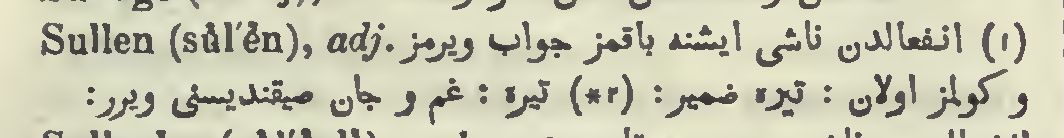 Sullen (sŭl´ĕn), adj. (١) انفعالدن ناشی ایشنه باقمز جواب ویرمز
و کولمز اولان : تیره ضمیر : (٢*) تیره : غم و جان صیقندیسنی ویرر :